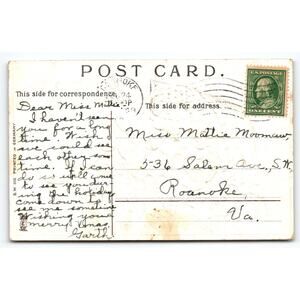 POST CARD.
This side for correspondence.
This side for address.
U.S. POSTAGE
ONE CENT
Dear Miss Mattie:
I haven't seen
you for a long
time. Wish
we could see
each other some
time. If I can
do so will come
to see you
the holiday
come down to
see me sometime
Wishing you a
merry Xmas
Garth
Miss Mattie Moomaw
536 Salem Ave., S.W.
Roanoke,
Va.